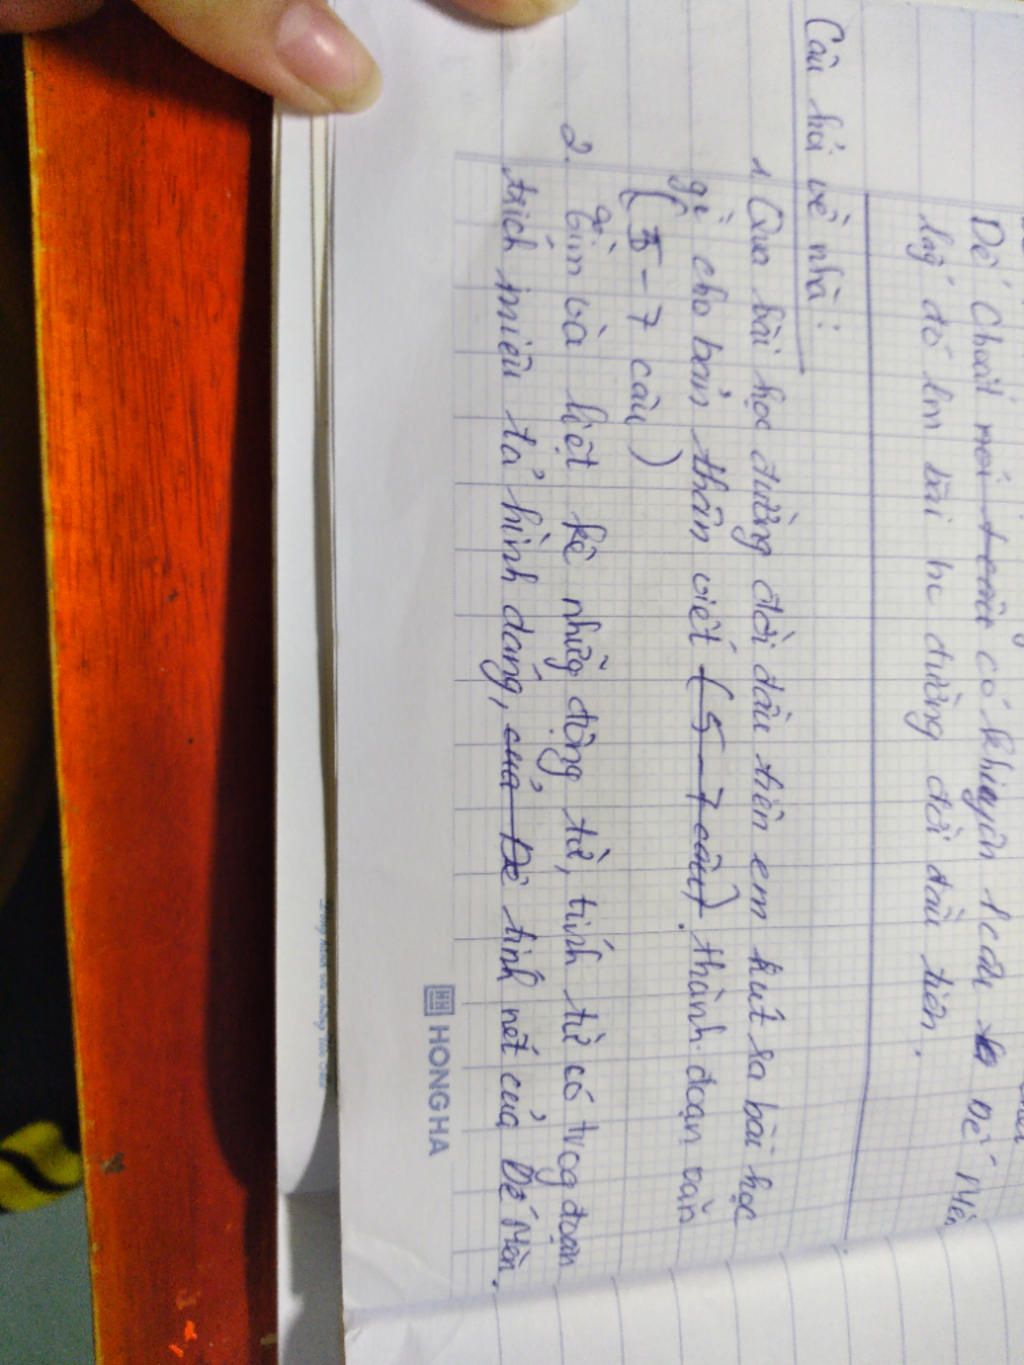 Dế Choắt mới có khuyên 1 câu Dế Mèn
lấy đó làm bài hc đường đời đầu tiên.
Câu hỏi về nhà:
1. Qua bài học đường đời đầu tiên em rút ra bài học
gì cho bản thân viết (5-7 câu). thành đoạn văn
(5-7 câu)
2. Tìm và liệt kê những động từ, tính từ có trog đoạn
trích miêu tả hình dáng, của Dế tính nết của Dế Mèn.
HONG HA